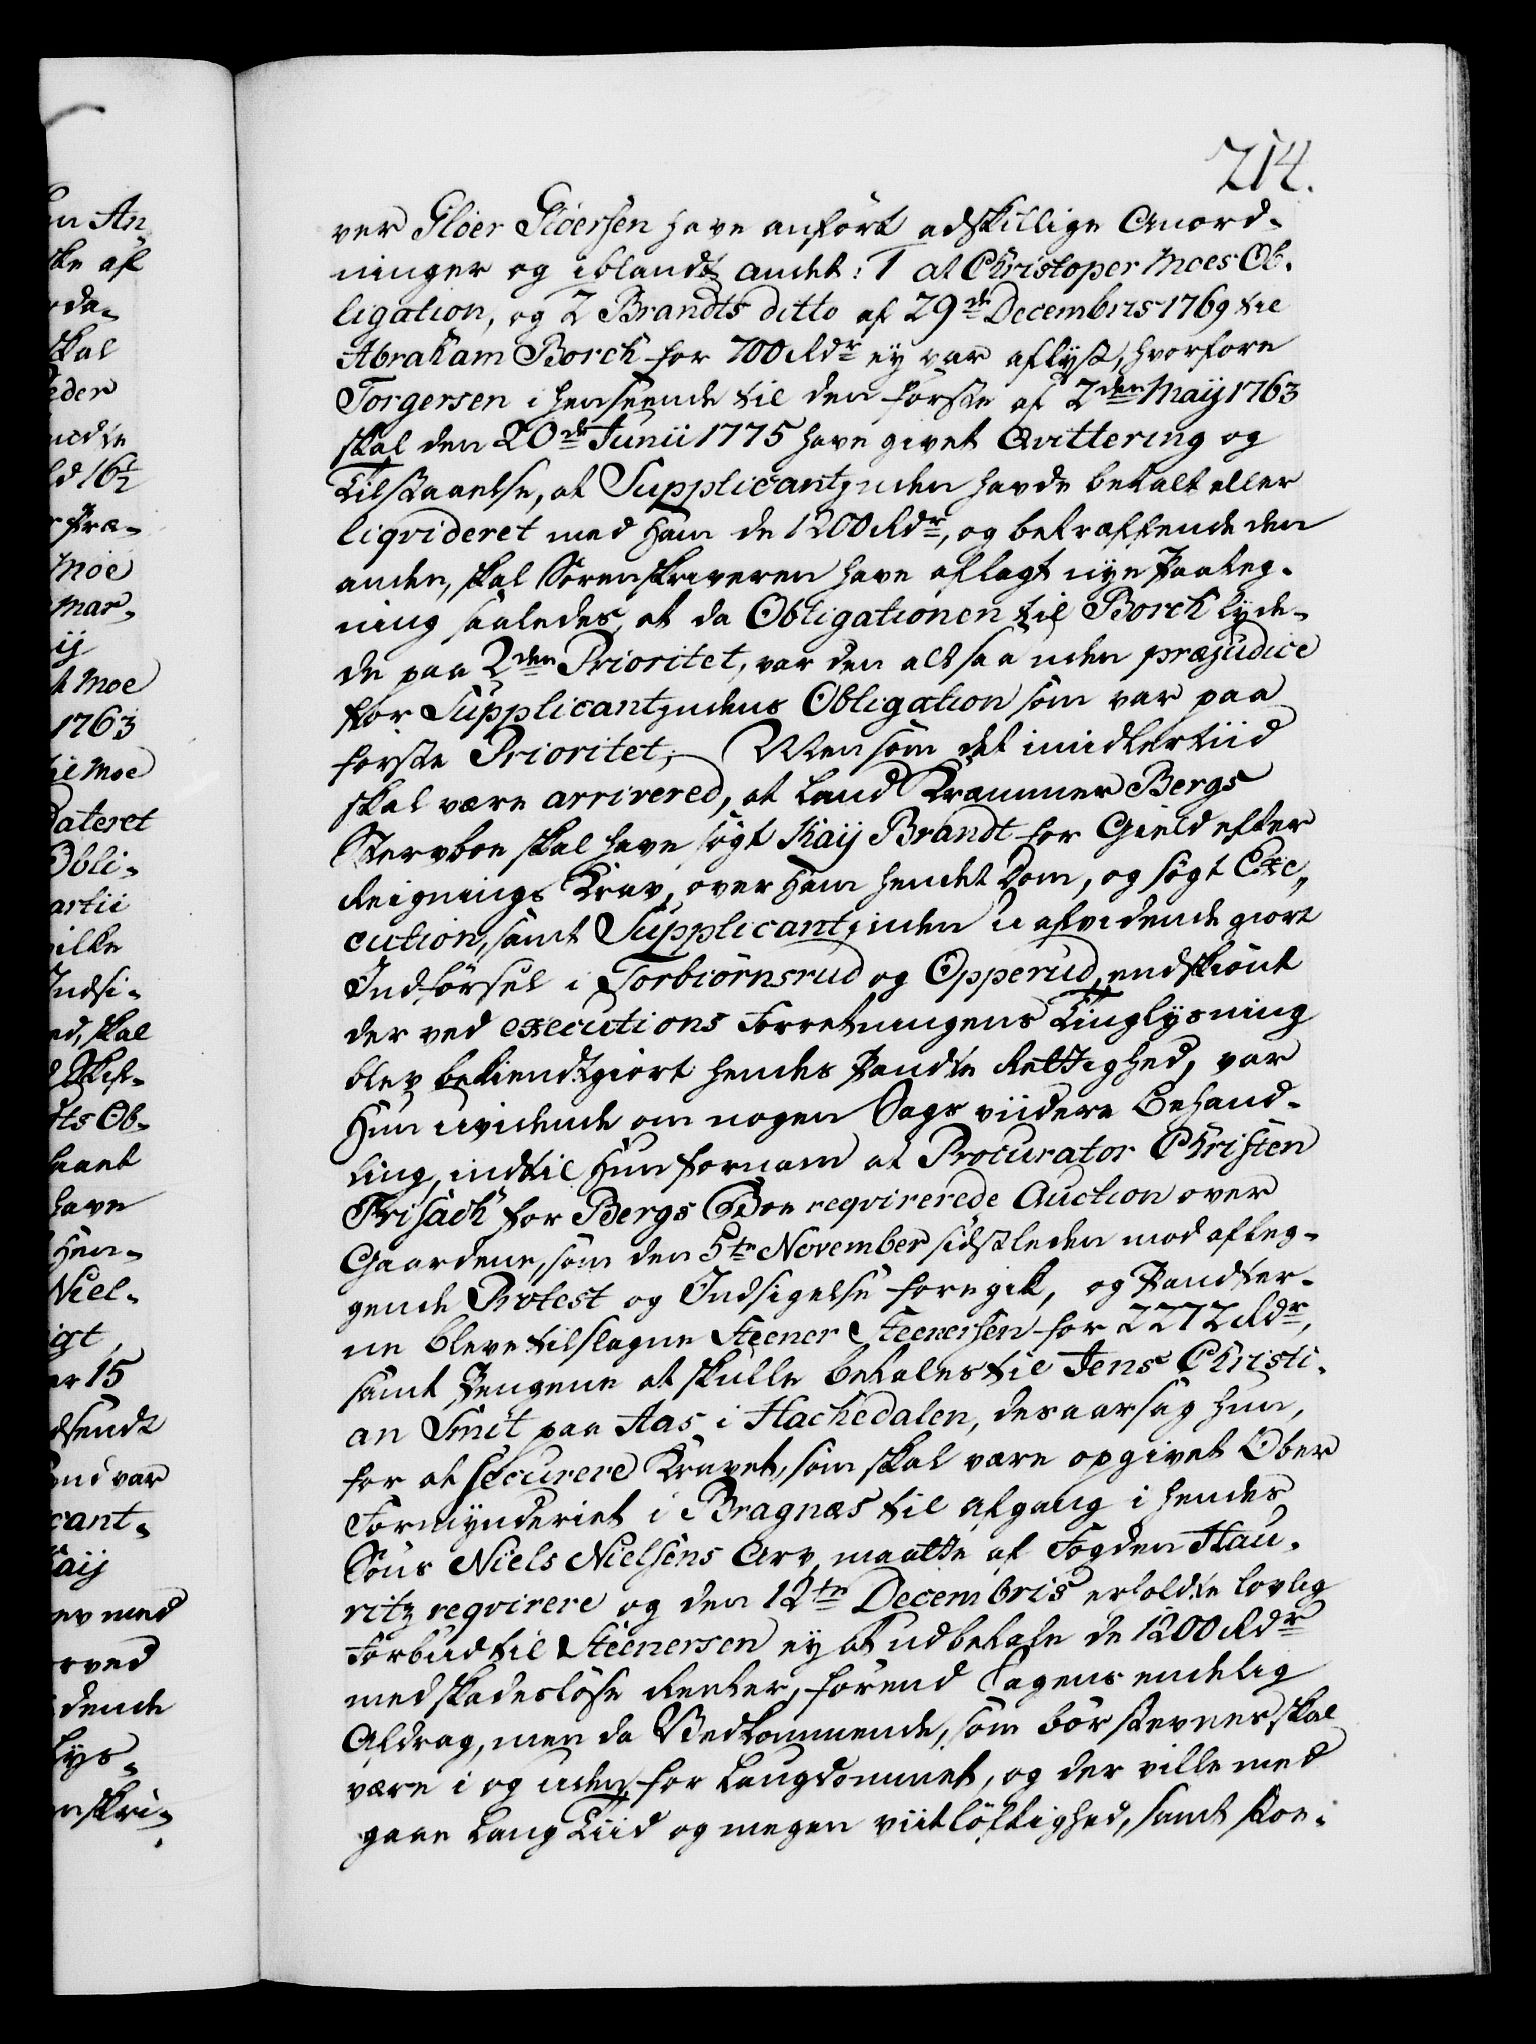 214.
ver Gløer Gløersen have anført adskillige Anord-
ninger og iblandt andet: 1 at Christoper Moes Ob-
ligation, og 2 Brandts ditto af 29de Decembris 1769 til
Abraham Borch for 700 Rdr ey var aflyst, hvorfore
Torgersen i henseende til den første af 2den Maij 1763
skal den 20de Junii 1775 have givet Qvittering og
Tilstaaelse, at Supplicantinden havde betalt eller
liqvideret med ham de 1200 Rdr, og betræffende den
anden, skal Sorenskriveren have aflagt nye Paateg-
ning saaledes, at da Obligationen til Borch lyde-
de paa 2den Prioritet, var den altsaa uden præjudice
for Supplicantindens Obligation som var paa
første Prioritet; Men som det imidlertiid
skal være arrivered, at Land Kræmmer Bergs
Stervboe skal have søgt Kaij Brandt for Gield efter
Reignings Krav, over ham hendet Dom, og søgt Exe-
cution, samt Supplicantinden uafvidende giort
Indførsel i Torbiørnsrud og Opperud, endskiønt
der ved executions Forretningens Tinglysning
blev bekiendtgiort hendes Pandte Rettighed, var
hun uvidende om nogen Sags viidere Behand-
ling, indtil hun fornam at Procurator Christen
Frisack for Bergs Boe reqvirerede Auction over
Gaardene, som den 5te November sidstleden mod afleg-
gende Protest og Indsigelse foregik, og Pandter-
ne bleve tilslagne Steener Steenersen for 2272 Rdr,
samt Pengene at skulle betales til Jens Christi-
an Smit paa Aas i Hackedalen, desaarsag hun,
for at securere Kravet, som skal være opgivet Ober
Formynderiet i Bragnæs til afgang i hendes
Søns Niels Nielsens Arv, maatte af Fogden Hau-
ritz reqvirere og den 12te Decembris erholdte lovlig
Forbud til Steenersen ey at udbetale de 1200 Rdr
med skadesløse Renter, førend Sagens endelig
Aldrag, men da Vedkommende, som bør stevnes skal
være i og uden for Laugdømmet, og der ville med
gaae Lang Tiid og megen viitløftighed, samt stoe-